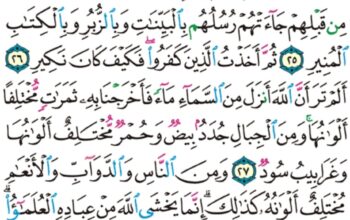 مِن قَبْلِهِمْ جَآءَتْهُمْ رُسُلُهُم بِٱلْبَيِّنَٰتِ وَبِٱلزُّبُرِ وَبِٱلْكِتَٰبِ
ٱلْمُنِيرِ ٢٥ ثُمَّ أَخَذْتُ ٱلَّذِينَ كَفَرُوا۟ ۖ فَكَيْفَ كَانَ نَكِيرِ ٢٦
أَلَمْ تَرَ أَنَّ ٱللَّهَ أَنزَلَ مِنَ ٱلسَّمَآءِ مَآءً فَأَخْرَجْنَا بِهِۦ ثَمَرَٰتٍ مُّخْتَلِفًا
أَلْوَٰنُهَا ۚ وَمِنَ ٱلْجِبَالِ جُدَدٌۢ بِيضٌ وَحُمْرٌ مُّخْتَلِفٌ أَلْوَٰنُهَا
وَغَرَابِيبُ سُودٌ ٢٧ وَمِنَ ٱلنَّاسِ وَٱلدَّوَآبِّ وَٱلْأَنْعَٰمِ
مُخْتَلِفٌ أَلْوَٰنُهُۥ كَذَٰلِكَ ۗ إِنَّمَا يَخْشَى ٱللَّهَ مِنْ عِبَادِهِ ٱلْعُلَمَٰٓؤُا۟ ۗ